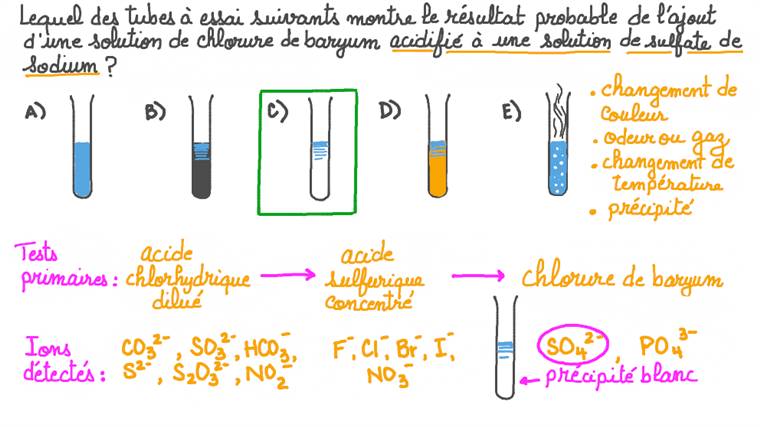 Lequel des tubes à essai suivants montre le résultat probable de l'ajout
d'une solution de chlorure de baryum acidifié à une solution de sulfate de
sodium ?
A) B) C) D) E)
• changement de
couleur
• odeur ou gaz
• changement de
température
• précipité
Tests
primaires :
acide
chlorhydrique
dilué
acide
sulfurique
concentré
chlorure de baryum
Ions
détectés :
CO₃²⁻, SO₃²⁻, HCO₃⁻,
S²⁻, S₂O₃²⁻, NO₂⁻
F⁻, Cl⁻, Br⁻, I⁻,
NO₃⁻
SO₄²⁻, PO₄³⁻
précipité blanc